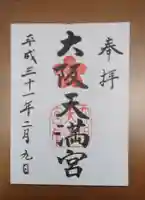 奉拝
大阪天満宮
平成三十一年二月九日